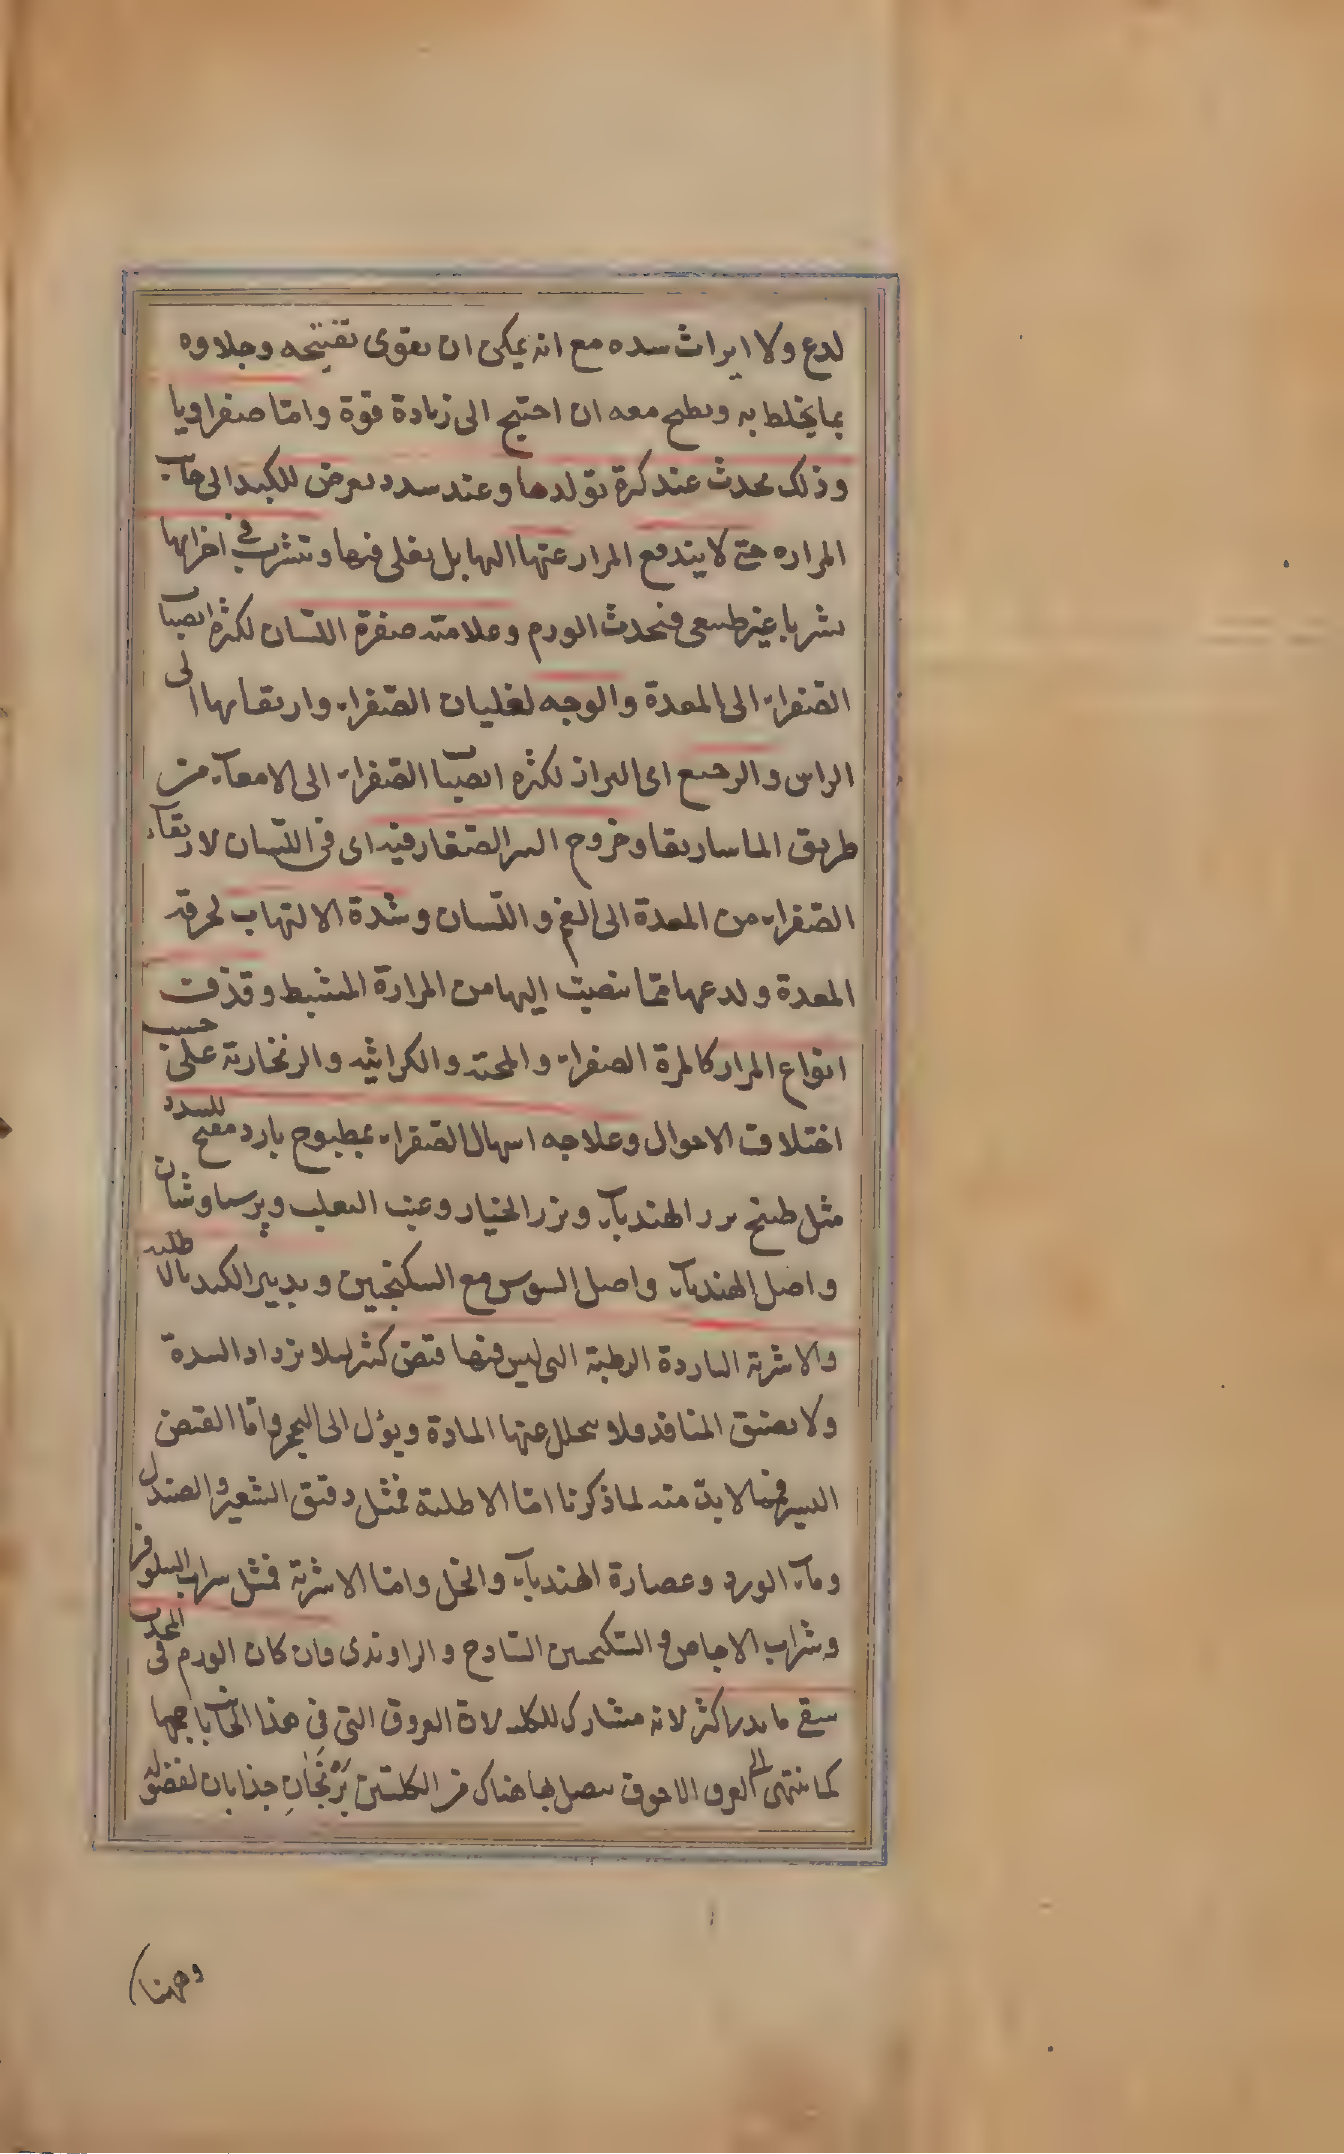 لدع ولا ايراث سده مع انه يمكن ان يقوى تفتيحه وجلاوه
بما يخلط به ويطبخ معه ان احتيج الى زيادة قوة وامّا صفراويا
وذلك يحدث عند كثرة تولدها وعند سدد يعرض للكبد الى جانب
المراره حتى لا يندفع المرار عنها اليها بل يغلى فيها وتتشرب فى اجزايها
تشربا غير طبيعى فيحدث الورم وعلامته صفرة اللسان لكثرة انصباب
الصّفراء الى المعدة والوجه لغليان الصّفراء وارتقايها الى
الراس والرجيع اى البراز لكثرة انصباب الصّفراء الى الامعاء من
طريق الماساريقا وخروج البثر الصّغار فيه اى فى اللّسان لارتقاء
الصّفراء من المعدة الى الفم واللّسان وشدة الالتهاب لحرقه
المعدة ولدعها ممّا ينصبّ اليها من المرارة المشيط وقذف
انواع المرار كالمرة الصفراء والمحيّه والكراثيه والزنجاريّة على حسب
اختلاف الاحوال وعلاجه اسهال الصّفراء بمطبوخ بارد مفتح للسدد
مثل طبيخ بزر الهندباء وبزر الخيار وعنب الثعلب وپرسياوشان
واصل الهندباء واصل السوس مع السكنجبين وتبريد الكبد بالاطليه
والاشربة الباردة الرطبة التى ليس فيها قبض كثير ليلا يزداد السدة
ولا يضيق المنافذ فلا يتحلل عنها المادة ويؤل الى التحجر وامّا القبض
اليسير فمما لابدّ منه لما ذكرنا امّا الاطلية فمثل دقيق الشعير والصندل
وماء الورد وعصارة الهندباء والخل وامّا الاشربة فمثل شراب النيلوفر
وشراب الاجاص والسّكنجبين السّادج والراوندى وان كان الورم فى المحدب
سقى ما يدر اكثر لانه مشارك للكلية لان العروق التى فى هذا الجانب باجمعها
كما تنتهى الى العرق الاجوف يتصل بها هناك من الكليتين بَرْبَخَانِ جذابان لفضول
وههنا